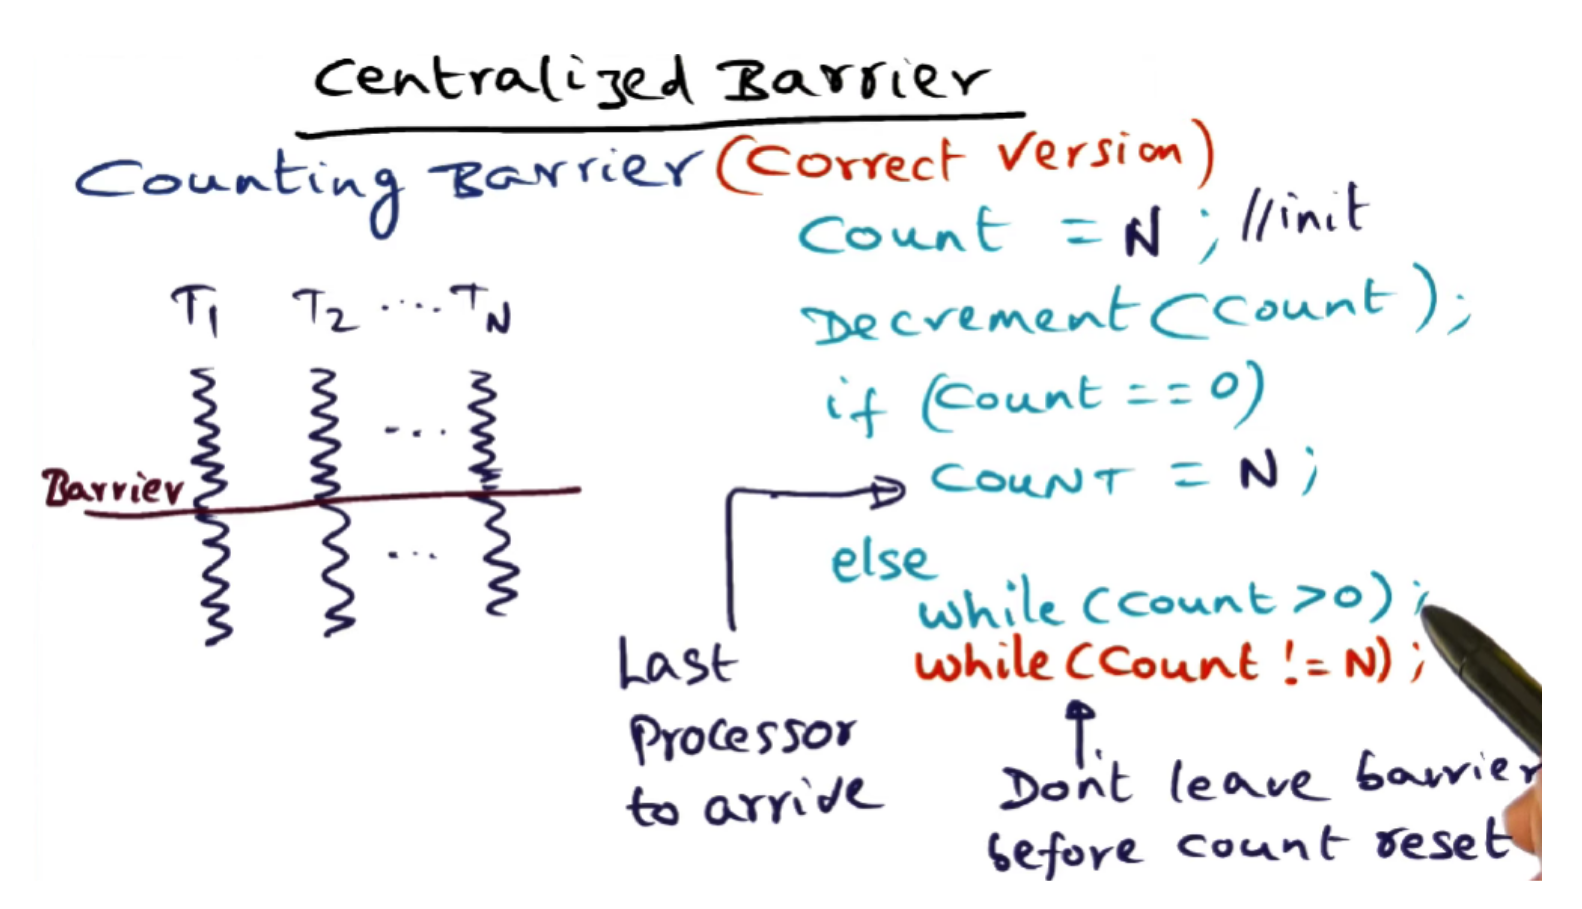 Centralized Barrier
Counting Barrier (Correct Version)
Count = N ; //init
Decrement (Count);
if (Count == 0)
COUNT = N ;
else
while (Count > 0) ;
while (Count != N) ;
T1 T2 .... TN
...
Barrier
...
Last
Processor
to arrive
Don't leave barrier
before count reset